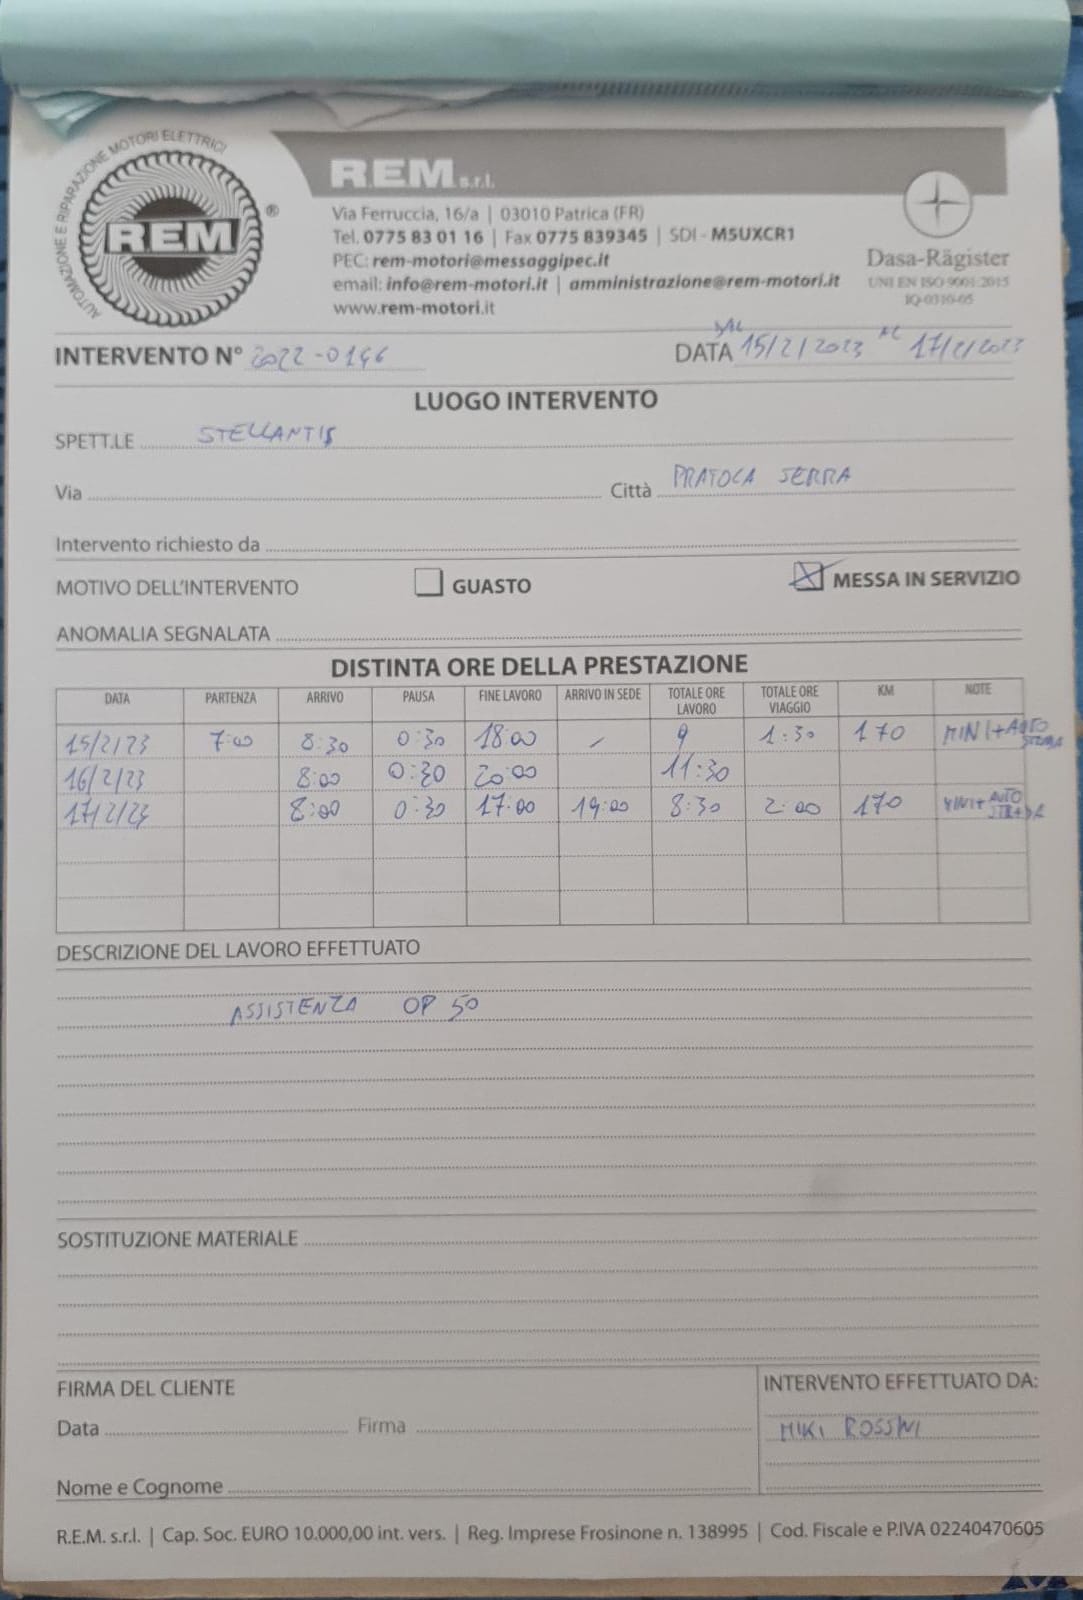 AUTOMAZIONE E RIPARAZIONE MOTORI ELETTRICI
REM ®
R.E.M. s.r.l.
Via Ferruccia, 16/a | 03010 Patrica (FR)
Tel. 0775 83 01 16 | Fax 0775 839345 | SDI - M5UXCR1
PEC: rem-motori@messaggipec.it
email: info@rem-motori.it | amministrazione@rem-motori.it
www.rem-motori.it
Dasa-Rägister
UNI EN ISO 9001:2015
IQ-0310-05
INTERVENTO N° 2022-0146 DATA DAL 15/2/2023 AL 17/2/2023
LUOGO INTERVENTO
SPETT.LE STELLANTIS
Via Città PRATOLA SERRA
Intervento richiesto da
MOTIVO DELL'INTERVENTO GUASTO MESSA IN SERVIZIO
ANOMALIA SEGNALATA
DISTINTA ORE DELLA PRESTAZIONE
DATA PARTENZA ARRIVO PAUSA FINE LAVORO ARRIVO IN SEDE TOTALE ORE LAVORO TOTALE ORE VIAGGIO KM NOTE
15/2/23 7:00 8:30 0:30 18:00 / 9 1:30 170 MINI+AUTOSTRADA
16/2/23 8:00 0:30 20:00 11:30
17/2/23 8:00 0:30 17:00 19:00 8:30 2:00 170 MINI+AUTOSTRADA
DESCRIZIONE DEL LAVORO EFFETTUATO
ASSISTENZA OP 50
SOSTITUZIONE MATERIALE
FIRMA DEL CLIENTE
Data Firma
Nome e Cognome
INTERVENTO EFFETTUATO DA:
MIKI ROSSINI
R.E.M. s.r.l. | Cap. Soc. EURO 10.000,00 int. vers. | Reg. Imprese Frosinone n. 138995 | Cod. Fiscale e P.IVA 02240470605